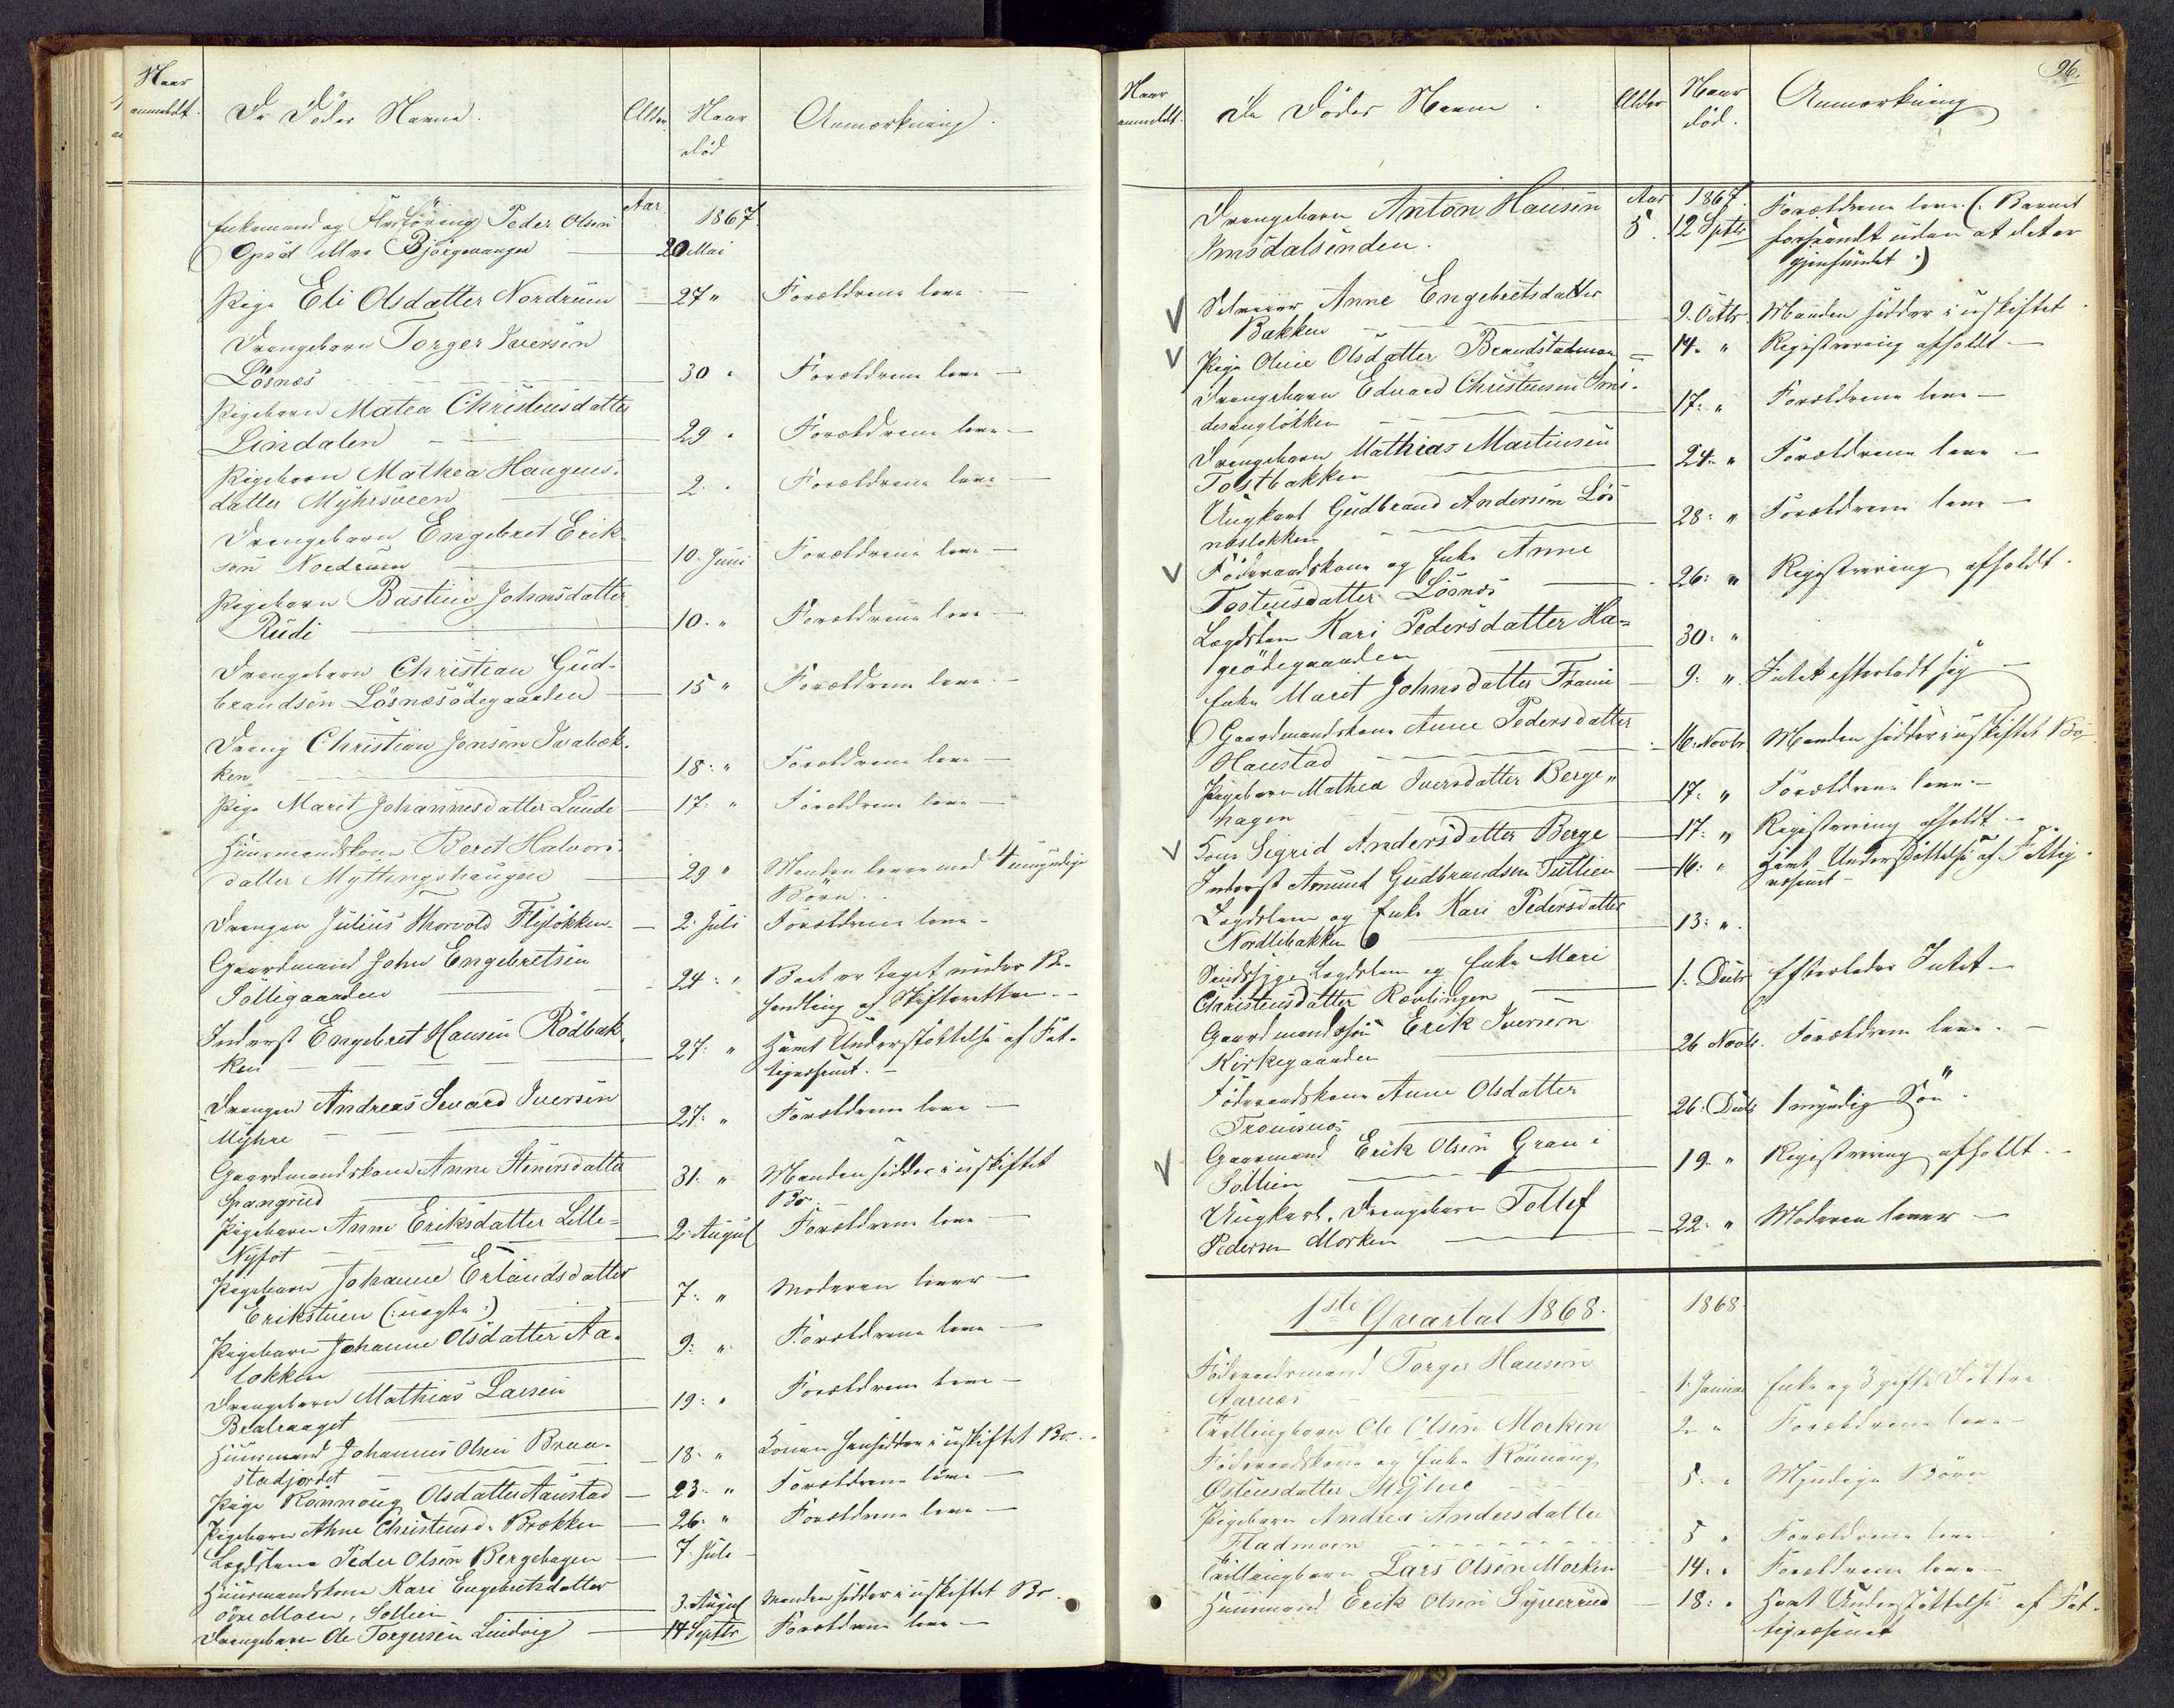 Naar
anmeldt.
De Dödes Navne.
Alder
Naar
död
Anmærkning.
Aar
1867.
Enkemand og Peder Olsen
Opsal Bjørgevangen
20 Mai
Pige Eli Olsdatter Nordrum — 27 " Forældrene leve —
Drengebarn Torger Iversen
Lösnes — 30 " Forældrene leve —
Pigebarn Matea Christensdatter
Lindalen — 29 " Forældrene leve —
Pigebarn Mathea Haugens-
datter Myhrsveen — 2. " Forældrene leve —
Drengebarn Engebret Erik-
sen Nordrum — 10. Juni Forældrene leve —
Pigebarn Bastine Johnsdatter
Rudi — 10. " Forældrene leve —
Drengebarn Christian Gud-
brandsen Lösnæsödegaarden — 15 " Forældrene leve —
Dreng Christian Jonsen Svabæk-
ken — 18. " Forældrene leve —
Pige Marit Johannesdatter Lunde — 17. " Forældrene leve —
Huusmandskone Beret Halvors-
datter Myttingshaugen — 29 " Manden lever med 4 umyndige
Börn.
Drengen Julius Thorvold Flyløkken — 2. Juli Forældrene leve —
Gaardmand John Engebretsen
Solligaarden — 24. " Boet er taget under Be-
handling af Skifteretten —
Inderst Engebret Hansen Rödbak-
ken — 27. " Havt Understøttelse af Fat-
tigvæsenet. —
Drengen Andreas Sevard Iversen
Myhre — 27. " Forældrene leve —
Gaardmandskone Anne Stenersdatter
Spangrud — 31. " Manden sidder i uskiftet
Bo.
Pigebarn Anne Eriksdatter Lille-
Nyfot — 2. August Forældrene leve —
Pigebarn Johanne Erlandsdatter
Erikstuen (: uægte :) 7. " Moderen lever —
Pigebarn Johanne Olsdatter Aa-
lökken — 9. " Forældrene leve —
Drengebarn Mathias Larsen
Bratraaget — 19. " Forældrene leve —
Huusmand Johannes Olsen Braa-
stadjordet — 18. " Konen hensidder i uskiftet Bo.
Pige Rönnoug Olsdatter Haustad — 23. " Forældrene leve —
Pigebarn Anne Christensd. Brækken — 26. " Forældrene leve —
Lægdslem Peder Olsen Bergehagen — 7. Juli
Huusmandskone Kari Engebretsdatter
övre Moen, Sollien — 3. August Manden sidder i uskiftet Bo.
Drengebarn Ole Torgersen Lindvig — 14 Septbr Forældrene leve —
96.
Naar
anmeldt.
De Dödes Navne.
Alder
Naar
död.
Anmærkning
Drengebarn Anton Hansen Aar 1867. Forældrene leve. (: Barnet
Imsdalsenden. 5. 12 Septb. forsvandt uden at det er
gjenfundet :)
V Selveier Anne Engebretsdatter
Bakken — 9. Octbr. Manden sidder i uskiftet
V Pige Oline Olsdatter Brandstadmoen — 14. " Registrering afholdt —
Drengebarn Edvard Christensen Smi-
desanglökken — 17. " Forældrene leve —
Drengebarn Mathias Martinsen
Tostbakken — 24. " Forældrene leve —
Ungkarl Gudbrand Andersen Lös-
næslökken — 28. " Forældrene leve —
V Föderaadskone og Enke Anne
Tostensdatter Lösnes — 26. " Registrering afholdt.
Lægdslem Kari Pedersdatter Ha-
geödegaarden — 30. "
Enke Marit Johnsdatter Framo — 9. " Intet efterladt sig —
Gaardmandskone Anne Pedersdatter
Haustad — 16. Novbr Manden sidder i uskiftet Bo
Pigebarn Mathea Iversdatter Berge-
hagen — 17. " Forældrene leve —
V Kone Sigrid Andersdatter Berge — 17. " Registrering afholdt —
Inderst Amund Gudbrandsen Tullien — 16. " Havt Understøttelse af Fattig-
væsenet —
Lægdslem og Enke Kari Pedersdatter
Nordlibakken — 13. "
Sindssyge Lægdslem og Enke Mari
Christensdatter Rævlingen — 1. Decbr Efterlader Intet —
Gaardmandssön Erik Iversen
Kirkegaarden — 26 Novbr. Forældrene leve. —
Föderaadskone Anne Olsdatter
Tromsnes — 26. Decbr 1 myndig Sön.
V Gaarmand Erik Olsen Gran i
Sollien — 19. " Registrering afholdt. —
Ungkarl. Drengebarn Tollef
Pedersen Morken — 22. " Moderen lever —
1ste Qvartal 1868. 1868.
Föderaadsmand Torger Hansen
Aarnæs — 1. Januar Enke og 3 gifte Döttre
Tvillingbarn Ole Olsen Morken 2. " Forældrene leve —
Föderaadskone og Enke Rönnaug
Østensdatter Myhre — 5. " Myndige Börn
Pigebarn Andrea Andersdatter
Fladmoen — 5 " Forældrene leve —
Tvillingbarn Lars Olsen Morken — 14. " Forældrene leve —
Huusmand Erik Olsen Syverrud — 18. " Havt Understøttelse af Fat-
tigvæsenet